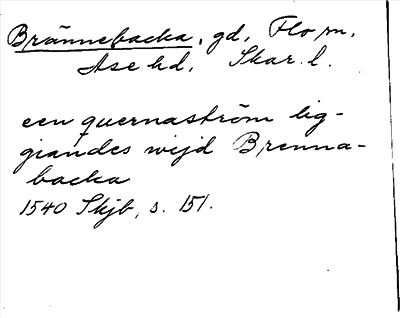 Brännebacka, gd, Flo sn,
Åse hd, Skar. l.
een quernaström lig-
giandes wijd Brenna-
backa
1540 Skjb, s. 151.